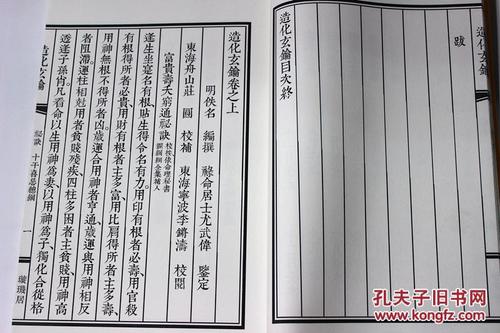 跋
造化玄鑰目次終
造化玄鑰卷之上
明佚名 編撰 祿命居士尤武偉 鑒定
東海舟山莊 圓 校補 東海寧波李鏘濤 校閱
富貴壽夭窮通祕訣 校按依命理秘書
全集補入
逢生坐實名有根貼生得令名有力、用印有根者必壽用官殺
有根得所者必貴用財有根者主多富用比肩得所者主多壽、
用神無根不得所者凶歲運合用神者亨通、歲運與用神相反
者阻滯、運柱相尅用者貧賤殘疾四柱多困者主貧賤、用神高
透逢子孫肖凡看命以生用神爲妻、以用神爲子、獨化合從格
造化玄鑰
祕訣 十干喜忌總綱
一
璇璣居
孔夫子旧书网
www.kongfz.com